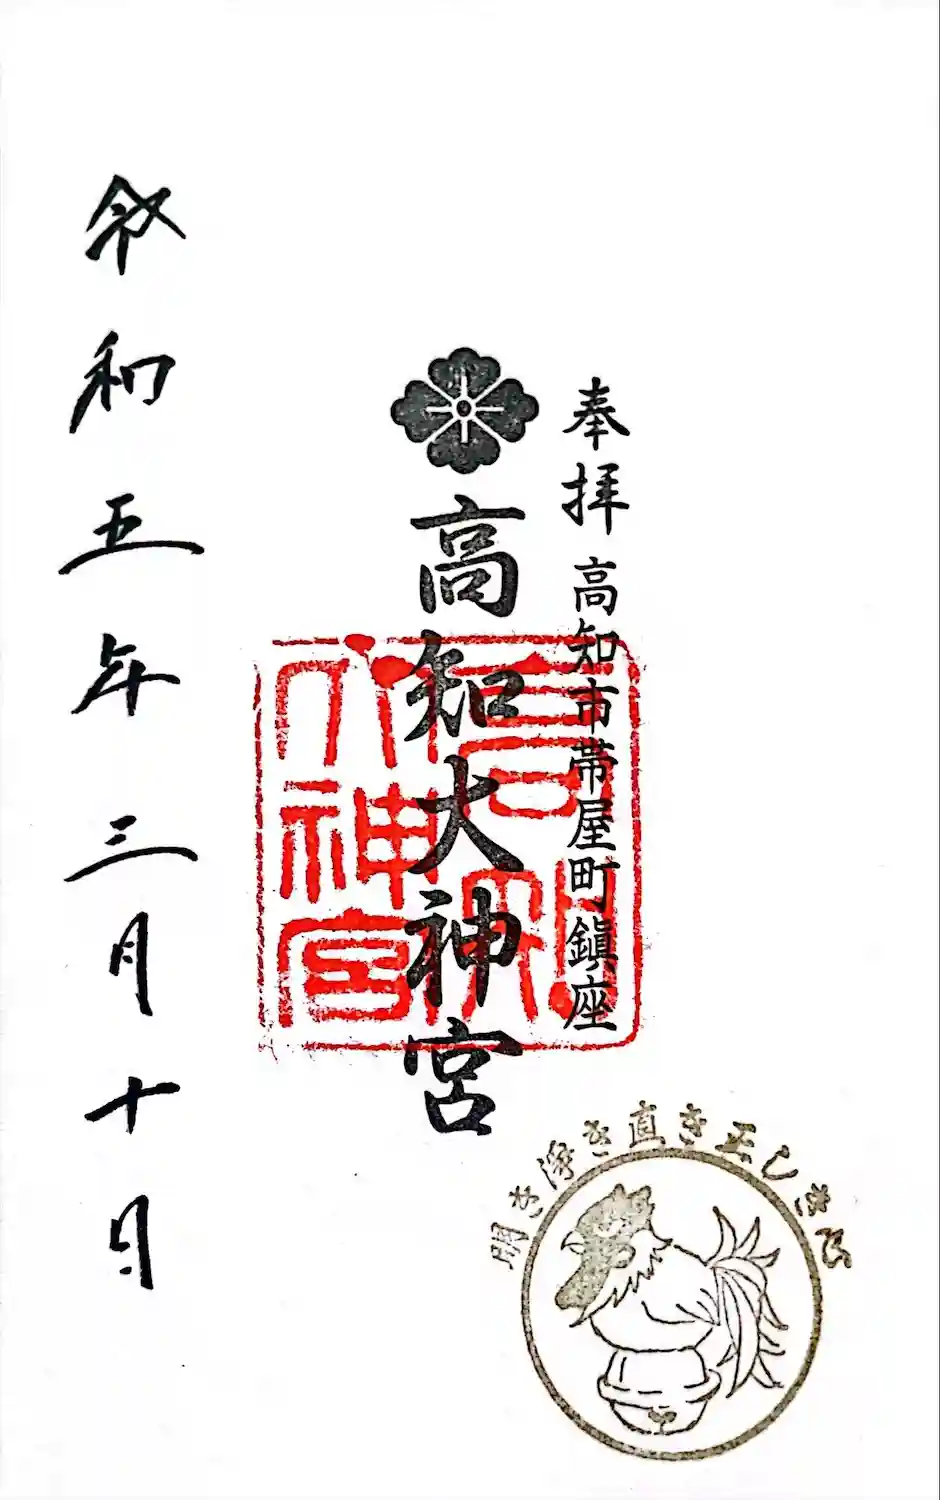 奉拝 高知市帯屋町鎮座
高知大神宮
高知大神宮
令和五年三月十日
明き浄き直き正しき心